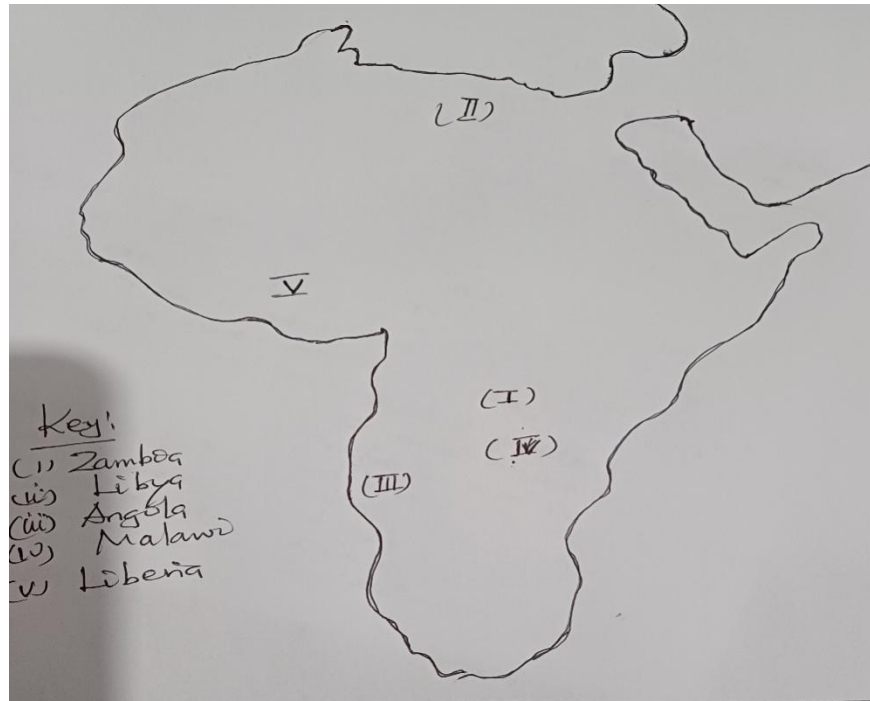 (II)
V
(I)
(IV)
(III)
Key:
(i) Zambia
(ii) Libya
(iii) Angola
(iv) Malawi
(v) Liberia